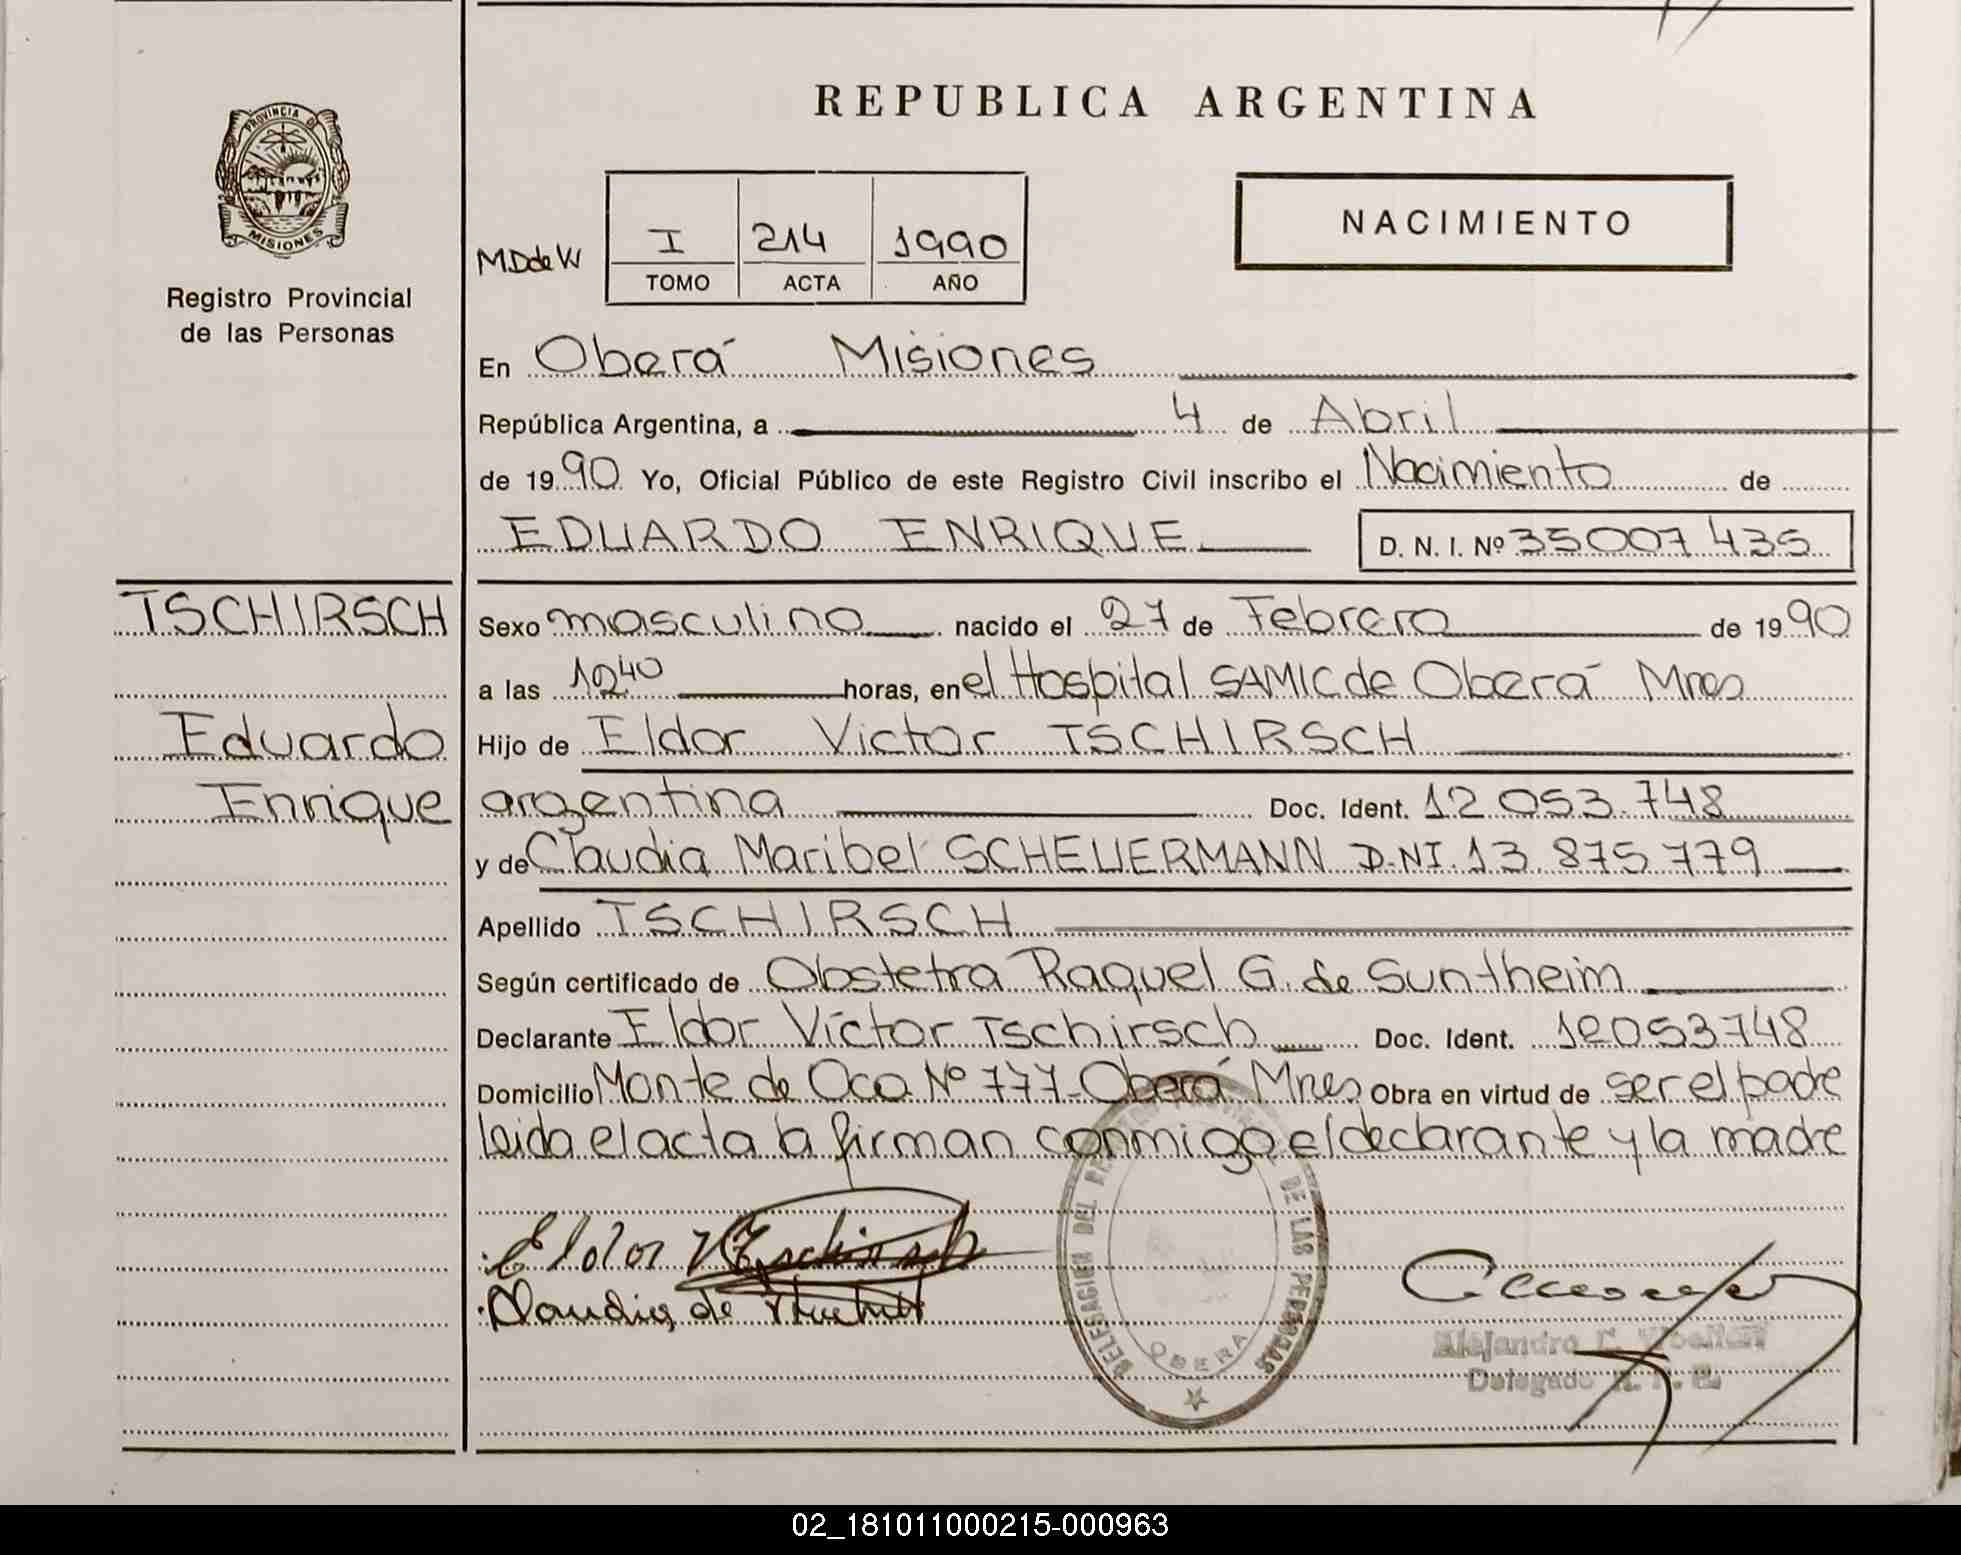 REPUBLICA ARGENTINA
PROVINCIA DE MISIONES
Registro Provincial
de las Personas
MDdeW
I 214 1990
TOMO ACTA AÑO
NACIMIENTO
En Oberá Misiones
República Argentina, a 4 de Abril
de 1990 Yo, Oficial Público de este Registro Civil inscribo el Nacimiento de
EDUARDO ENRIQUE D. N. I. Nº 35007435
TSCHIRSCH
Eduardo
Enrique
Sexo masculino nacido el 27 de Febrero de 1990
a las horas, en el Hospital SAMIC de Oberá Mnes
Hijo de Eldor Victor TSCHIRSCH
argentina Doc. Ident. 12.053.748
y de Claudia Maribel SCHEUERMANN D.NI.13.875.779
Apellido TSCHIRSCH
Según certificado de Obstetra Raquel G. de Suntheim
Declarante Eldor Víctor Tschirsch Doc. Ident. 12053748
Domicilio Monte de Oca Nº 777-Oberá Mnes Obra en virtud de ser el padre
leida el acta la firman conmigo el declarante y la madre
Eldor V Tschirsch
Claudia de
DELEGACION DEL DE LAS PERSONAS
OBERA
Alejandro C.
Delegado R. P. P.
02_181011000215-000963